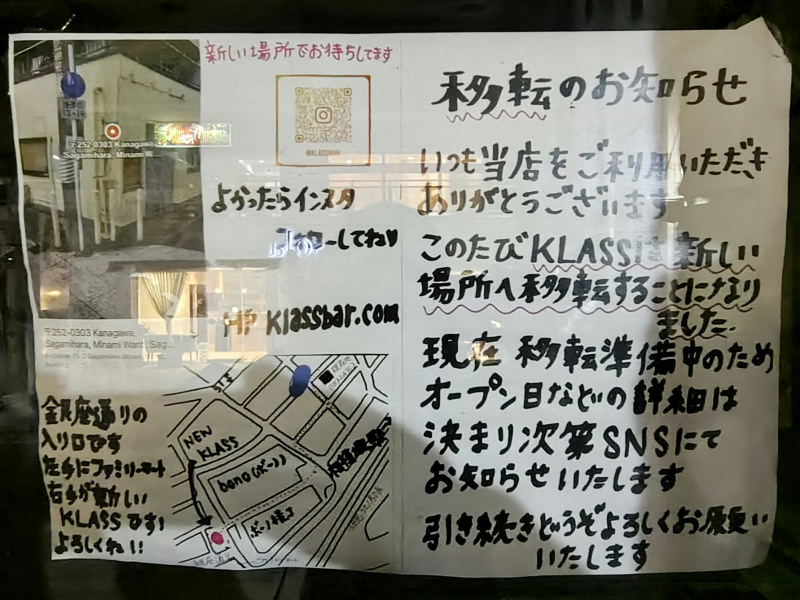 新しい場所でお待ちしてます
〒252-0303 Kanagawa,
Sagamihara, Minami W
よかったらインスタ
フォローしてね♡
HP klassbar.com
〒252-0303 Kanagawa,
Sagamihara, Minami Ward, Sag
NEW
KLASS
bono(ボーノ)
ボーノ横丁
銀座通りの
入り口です
左手にファミリーマート
右手が新しい
KLASSです!
よろしくね!!
移転のお知らせ
いつも当店をご利用いただき
ありがとうございます
このたびKLASSは新しい
場所へ移転することになり
ました.
現在 移転準備中のため
オープン日などの詳細は
決まり次第SNSにて
お知らせいたします
引き続きどうぞよろしくお願い
いたします